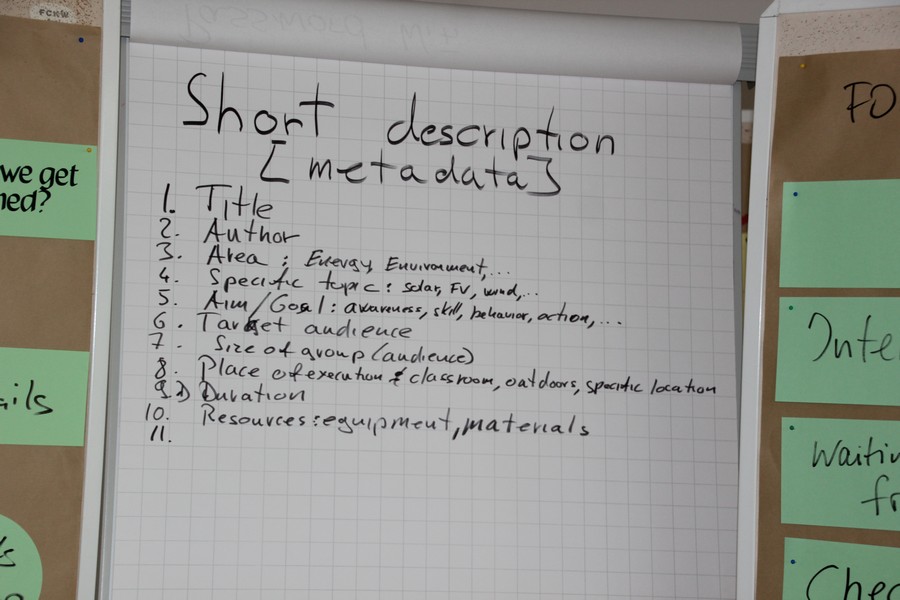 FCKW
Short description
[metadata]
1. Title
2. Author
3. Area : Energy, Environment,...
4. Specific topic: solar, FV, wind,...
5. Aim/Goal: awareness, skill, behavior, action, ...
6. Target audience
7. Size of group (audience)
8. Place of execution : classroom, outdoors, specific location
9. Duration
10. Resources: equipment, materials
11.
we get
ned?
ails
FO
Inte
Waitin
fr
Chec